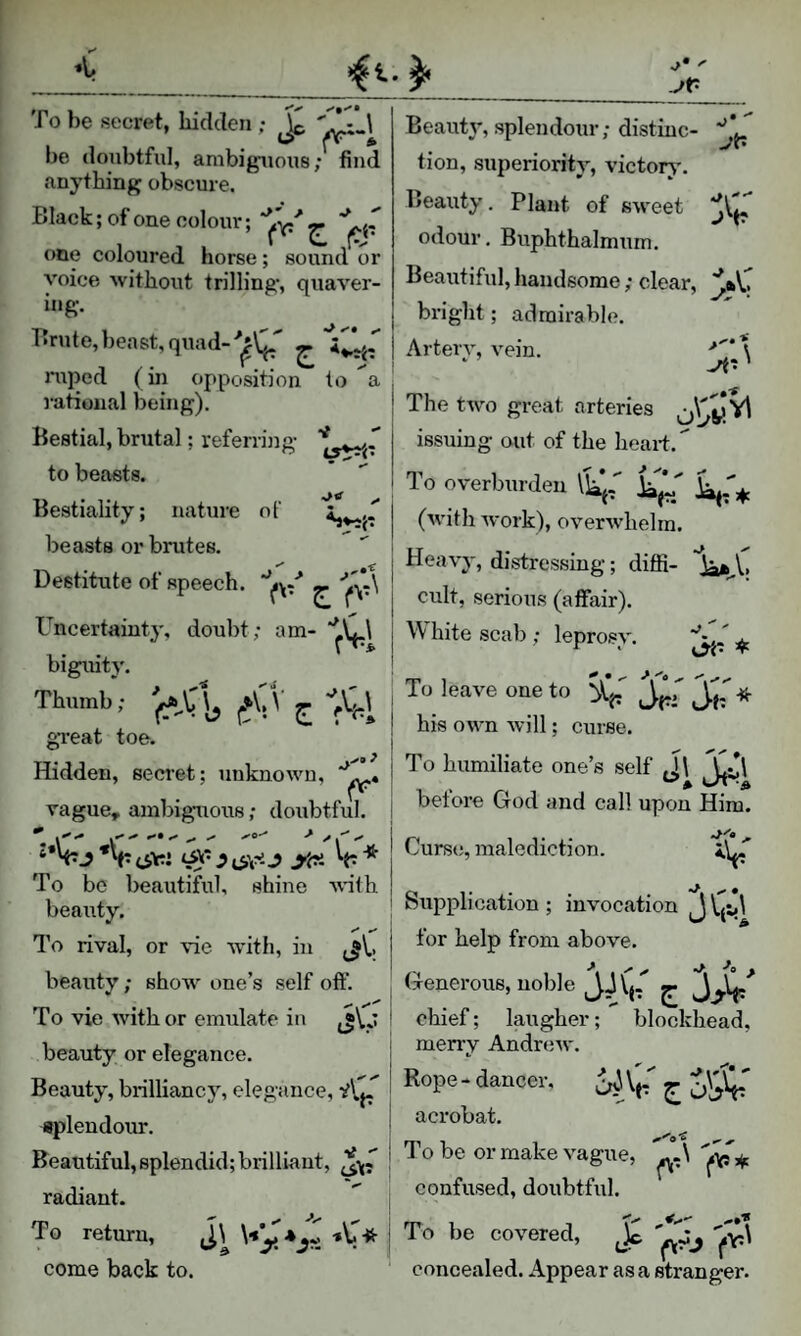 بهر
باء
Beauty, splendour; distinc- بَهْر
tion, superiority, victory.
Beauty. Plant of sweet بَهَار
odour. Buphthalmum.
Beautiful, handsome; clear, بَاهِر
bright; admirable.
Artery, vein. أَبْهَر
The two great arteries الأَبْهَرَان
issuing out of the heart.
To overburden بَهَظَ يَبْهَظُ بَهْظًا *
(with work), overwhelm.
Heavy, distressing; diffi- بَاهِظ
cult, serious (affair).
White scab; leprosy. بَهَق *
To leave one to بَهَلَ يَبْهَلُ بَهْلًا *
his own will; curse.
To humiliate one's self إِبْتَهَلَ إِلَى
before God and call upon Him.
Curse, malediction. بَهْلَة
Supplication; invocation إِبْتِهَال
for help from above.
Generous, noble بُهْلُول ج بَهَالِيل
chief; laugher; blockhead,
merry Andrew.
Rope-dancer, بَهْلَوَان ج بَهَالِين
acrobat.
To be or make vague, بَهَّمَ أَبْهَمَ *
confused, doubtful.
To be covered, أُبْهِمَ وَتَبَهَّمَ عَلَى
concealed. Appear as a stranger.
To be secret, hidden; إِسْتَبْهَمَ عَلَى
be doubtful, ambiguous; find
anything obscure.
Black; of one colour; بَهِيم ج بُهُم
one coloured horse; sound or
voice without trilling, quaver-
ing.
Brute, beast, quad- بَهِيمَة ج بَهَائِم
ruped (in opposition to a
rational being).
Bestial, brutal; referring بَهِيمِيّ
to beasts.
Bestiality; nature of بَهِيمِيَّة
beasts or brutes.
Destitute of speech. أَبْهَم ج بُهْم
Uncertainty, doubt; am- إِبْهَام
biguity.
Thumb; إِبْهَام ج أَبَاهِم وَأَبَاهِيم
great toe.
Hidden, secret; unknown, مُبْهَم
vague, ambiguous; doubtful.
* بَهَا يَبْهُو وَبَهِيَ يَبْهَى بَهَاءً وَبَهَاءَةً
To be beautiful, shine with
beauty.
To rival, or vie with, in بَاهَى
beauty; show one's self off.
To vie with or emulate in تَبَاهَى
beauty or elegance.
Beauty, brilliancy, elegance, بَهَاء
splendour.
Beautiful, splendid; brilliant, بَهِيّ
radiant.
To return, بَاءَ يَبُوءُ بَوْءًا إِلَى *
come back to.